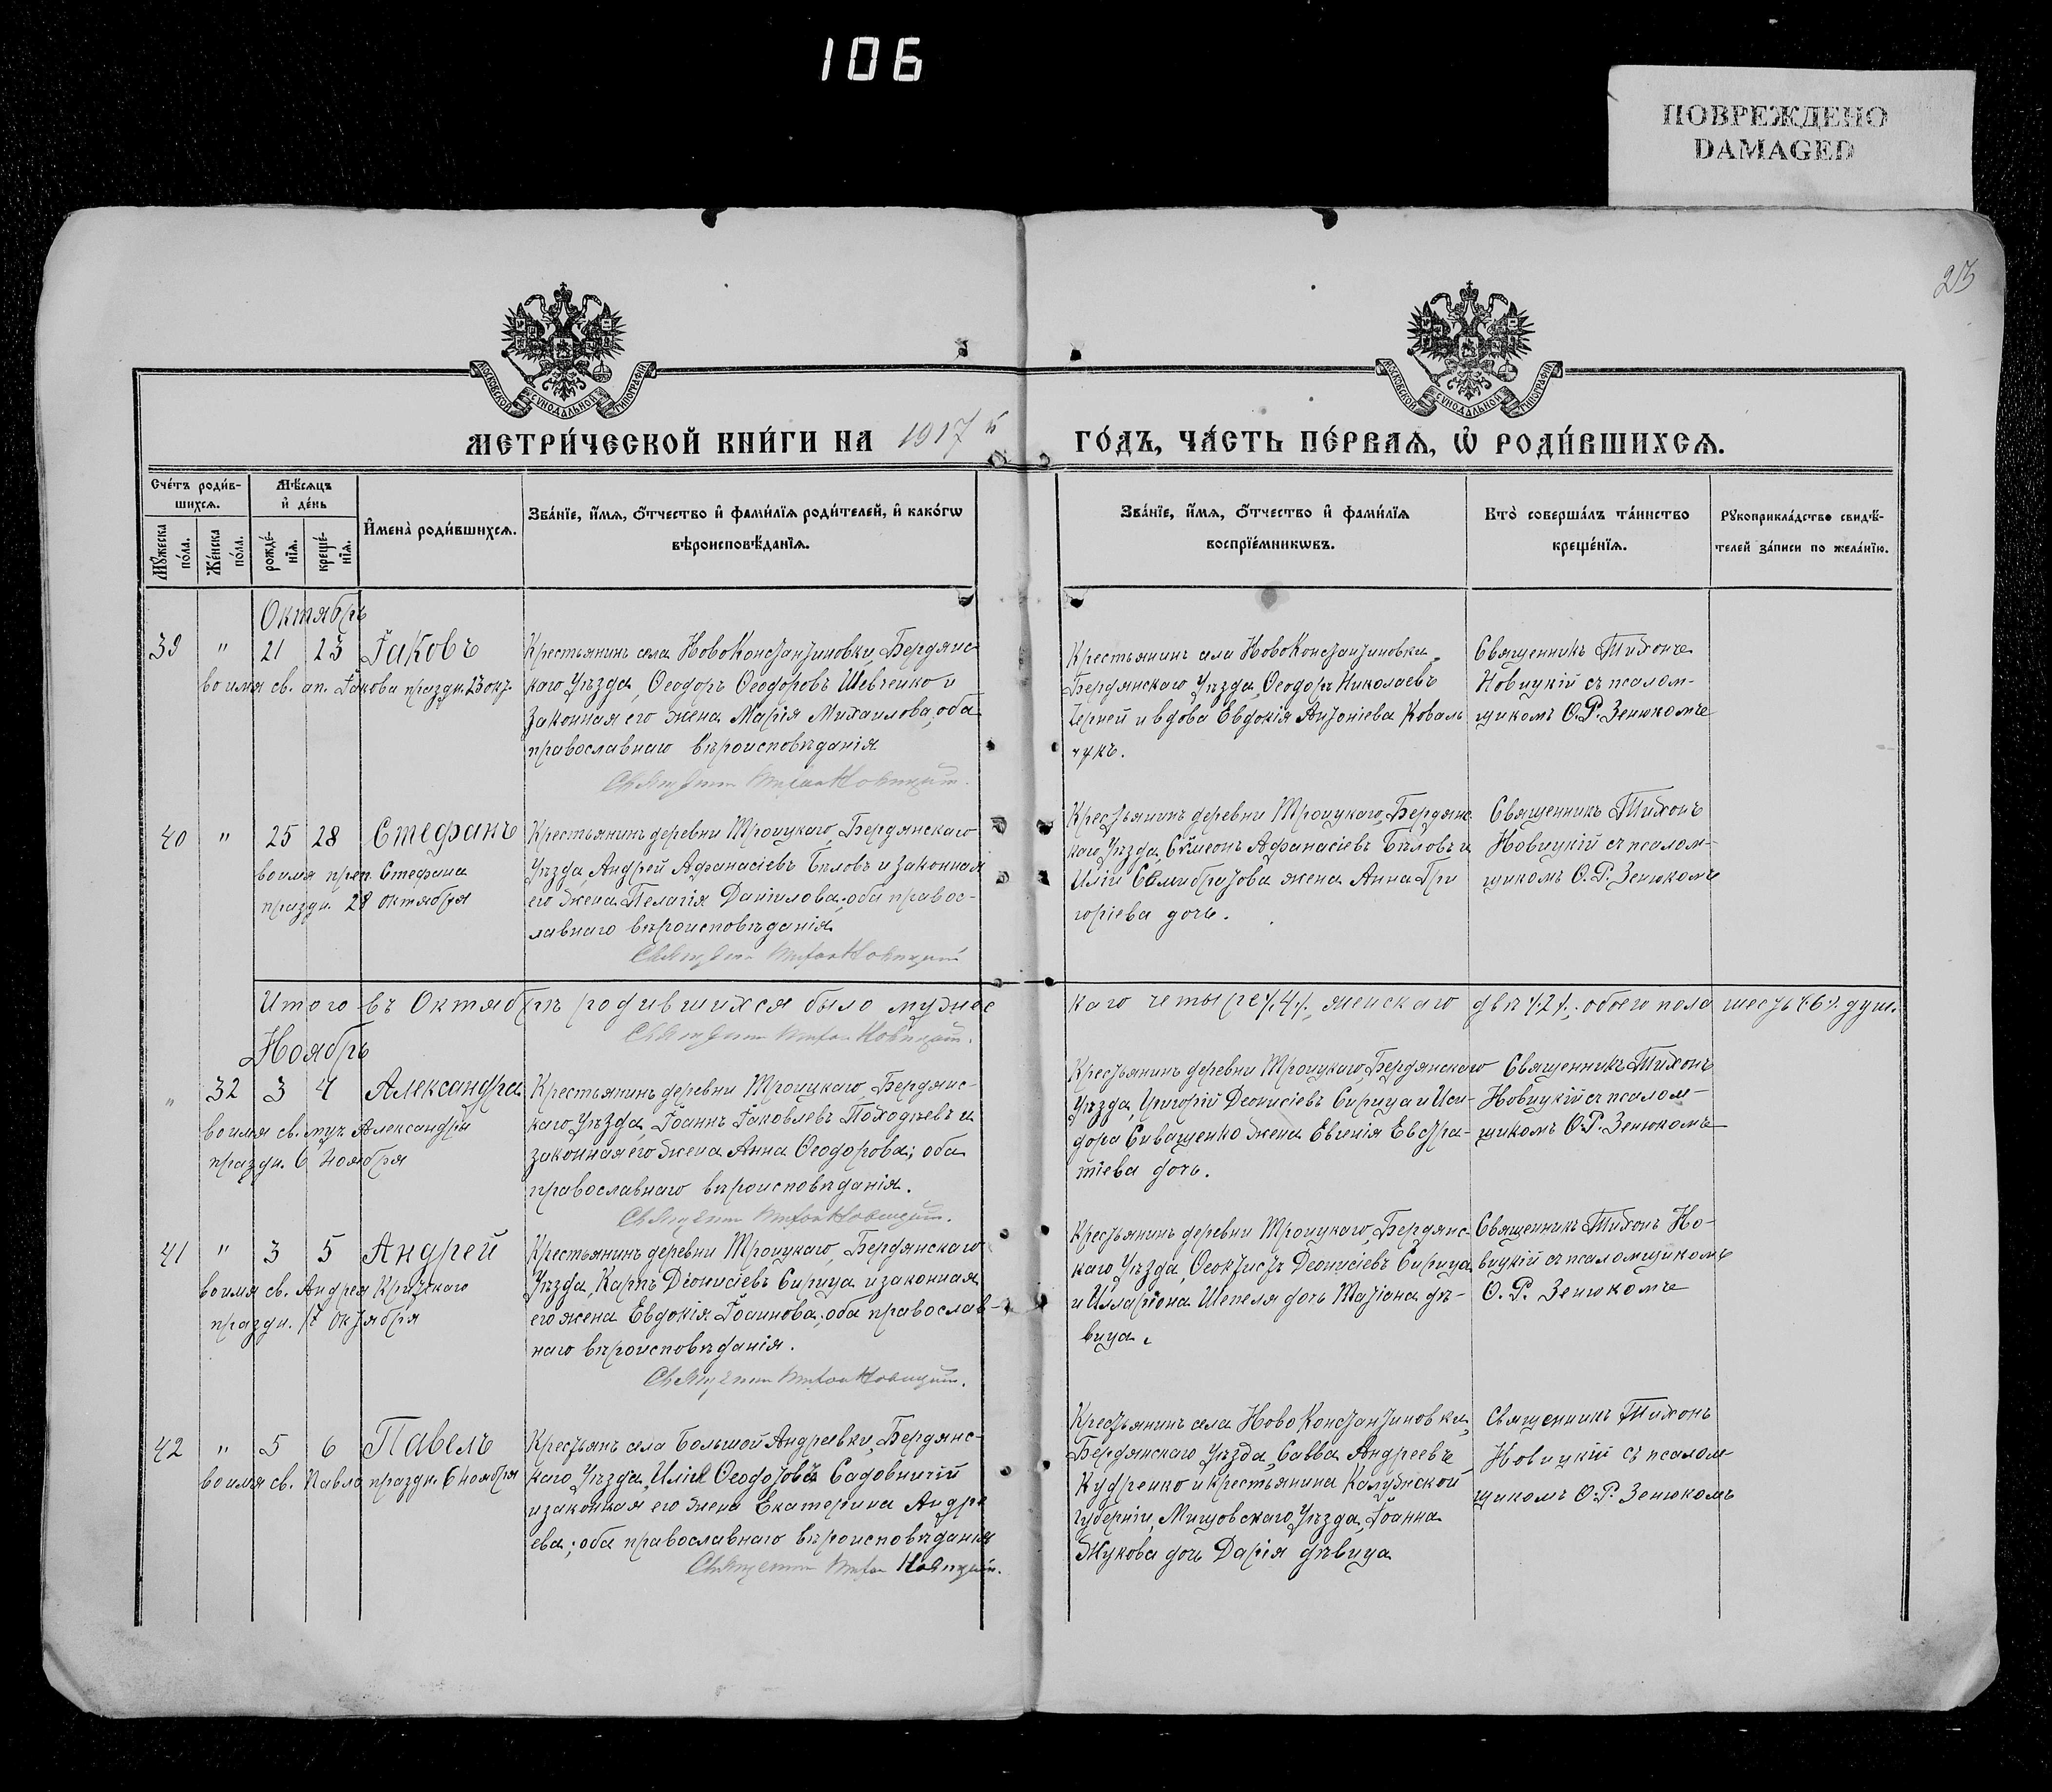 106
ПОВРЕЖДЕНО
DAMAGED
23
МОСКОВСКОЙ СѴНОДАЛЬНОЙ ТИПОГРАФІИ
МОСКОВСКОЙ СѴНОДАЛЬНОЙ ТИПОГРАФІИ
МЕТРИ́ЧЕСКОЙ КНИ́ГИ НА 1917 й
ГО́ДЪ, ЧА́СТЬ ПЕ́РВАѦ, Ѡ РОДИ́ВШИХСѦ.
Сче́тъ роди́в-
шихсѧ.
Мѣ́сяцъ
и҆ де́нь
Мꙋ́жеска
по́ла.
Же́нска
по́ла.
рожде́-
нїѧ.
креще́-
нїѧ.
И҆мена̀ роди́вшихсѧ.
Зва́нїе, и҆́мѧ, ѻ҆́тчество и҆ фами́лїѧ роди́телей, и҆ како́гѡ
вѣроисповѣ́данїѧ.
Зва́нїе, и҆́мѧ, ѻ҆́тчество и҆ фами́лїѧ
воспрїе́мникѡвъ.
Кто̀ соверша́лъ та́инство
креще́нїѧ.
Рꙋкоприкла́дство свидѣ́-
телей за́писи по жела́нїю.
Октябрь
39 " 21 23 Іаковъ
во имя св. ап. Іакова праздн. 23 окт.
Крестьянинъ села Ново Константиновки, Бердянс-
каго Уѣзда, Ѳеодоръ Ѳеодоровъ Шевченко и
законная его жена Марія Михаилова; оба
православнаго вѣроисповѣданія
Священникъ Тихонъ Новицкій.
Крестьянинъ села Ново Константиновки,
Бердянскаго Уѣзда, Ѳеодоръ Николаевъ
Черней и вдова Евдокія Антоніева Коваль
чукъ.
Священникъ Тихонъ
Новицкій съ псалом-
щикомъ Ѳ. Р. Зенюкомъ
40 " 25 28 Стефанъ
во имя преп. Стефана
праздн. 28 октября
Крестьянинъ деревни Троицкаго, Бердянскаго
Уѣзда, Андрей Афанасіевъ Бѣловъ и законная
его жена Пелагія Даніилова; оба правос-
лавнаго вѣроисповѣданія
Священникъ Тихонъ Новицкій
Крестьянинъ деревни Троицкаго, Бердянс-
каго Уѣзда, Сѵмеонъ Афанасіевъ Бѣловъ и
Иліи Селибратова жена Анна Гри
горіева дочь.
Священникъ Тихонъ
Новицкій съ псалом-
щикомъ Ѳ. Р. Зенюкомъ
Итого въ Октябрѣ родившихся было мужес
каго четыре /.4/., женскаго двѣ /.2/.; обоего пола шесть /.6/. душъ.
Священникъ Тихонъ Новицкій.
Ноябрь
" 32 3 4 Александра
во имя св. муч. Александры
праздн. 6 ноября
Крестьянинъ деревни Троицкаго, Бердянс-
каго Уѣзда, Іоаннъ Іаковлевъ Походневъ и
законная его жена Анна Ѳеодорова; оба
православнаго вѣроисповѣданія.
Священникъ Тихонъ Новицкій.
Крестьянинъ деревни Троицкаго, Бердянскаго
Уѣзда, Григорій Деонисіевъ Сирица и Иси-
дора Сиващенко жена Евгенія Евстра-
тіева дочь.
Священникъ Тихонъ
Новицкій съ псалом-
щикомъ Ѳ. Р. Зенюкомъ
41 " 3 5 Андрей
во имя св. Андрея Критскаго
праздн. 17 октября
Крестьянинъ деревни Троицкаго, Бердянскаго
Уѣзда, Карпъ Діонисіевъ Сирица и законная
его жена Евдокія Іоаннова; оба православ-
наго вѣроисповѣданія.
Священникъ Тихонъ Новицкій.
Крестьянинъ деревни Троицкаго, Бердянс-
каго Уѣзда, Ѳеоктистъ Деонисіевъ Сирица
и Илларіона Шепеля дочь Татіана дѣ-
вица.
Священникъ Тихонъ Но-
вицкій съ псаломщикомъ
Ѳ. Р. Зенюкомъ
42 " 5 6 Павелъ
во имя св. Павла праздн. 6 ноября
Крестьянъ села Большой Андреевки, Бердянс-
каго Уѣзда, Илія Ѳеодотовъ Садовничій
и законная его жена Екатерина Андре
ева; оба православнаго вѣроисповѣданія
Священникъ Тихонъ Новицкій.
Крестьянинъ села Ново Константиновки,
Бердянскаго Уѣзда, Савва Андреевъ
Кудренко и крестьянина Калужской
Губерніи, Мищовскаго Уѣзда, Іоанна
Жукова дочь Дарія дѣвица
Священникъ Тихонъ
Новицкій съ псалом-
щикомъ Ѳ. Р. Зенюкомъ